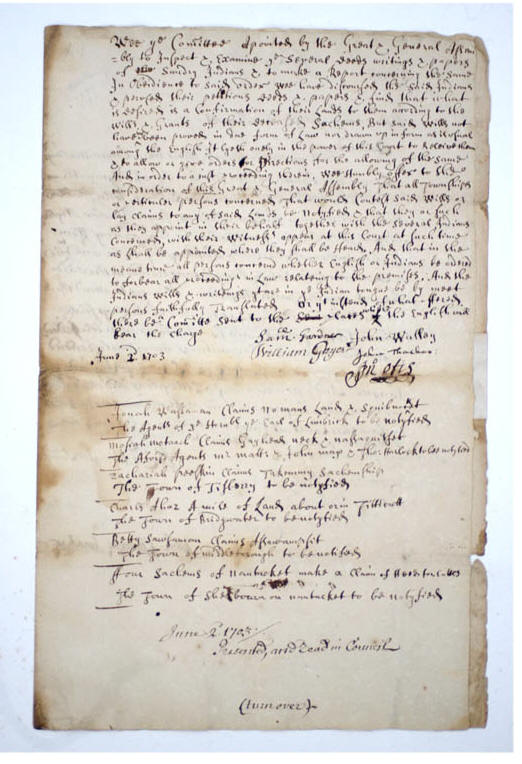 Wee ye Comittee Apointed by the Great & General Assem
bly to Inspect & Examine ye Several Deeds writings & papers
of Sundry Indians & to make a Report concerning the Same
In Obedience to Said Order wee have discoursed the Said Indians
& perused their petitions Deeds & papers & find that what
is desired is a Confirmation of their Lands to them acording to the
wills & Grants of their deceased Sachems. But said Wills not
haveing been proved in due form of Law nor drawn up in form as is usual
among the English it Lyeth only in the power of this Court to Receive them
& to allow or give order or Directions for the allowing of the same
And in order to a just proceeding therein, wee Humbly offer to the
Consideration of this Great & General Assembly That all Townships
or perticuler persons concerned That would Contest said Wills or
lay claims to any of said Lands be Notifyed & that they or such
as they appoint in their behalf together with the Several Indians
Concerned, with their Witnesses appear at the Court at such time
as shall be appointed where they shall be heard, And that in the
meane time all persons concerned whether English or Indians be ordered
to forbear all proceedings in Law relating to the premises. And the
Indians wills & writeings in ye Indian tongue be by meet
persons faithfully Translated
there be Comitte sent to the places the English will
bear the charge
June 2 1703
Gardner John Walley
William Gayer John Thacher
Jno Otis
Claims Nomans Land & Squibnocket
The Agents of ye Earl of Limbrick to be notifyed
Claims Gayhead neck &
The Agents mr & John & Tho: Harlock to be notifyed
Zachariah Claims Takemmy Sachemship
The Town of Tisberry to be notifyed
A mile of Land about or in Titticutt
The Town of Bridgwater to be notifyed
Betty Claims Assawampsit
The Town of middlebrough to be notifed
Four Sachems of Nantucket make a Claim of
The Town of Sherbourn on nantucket to be notifyed
June 2. 1703
Presented, and Read in Council
(turn over)